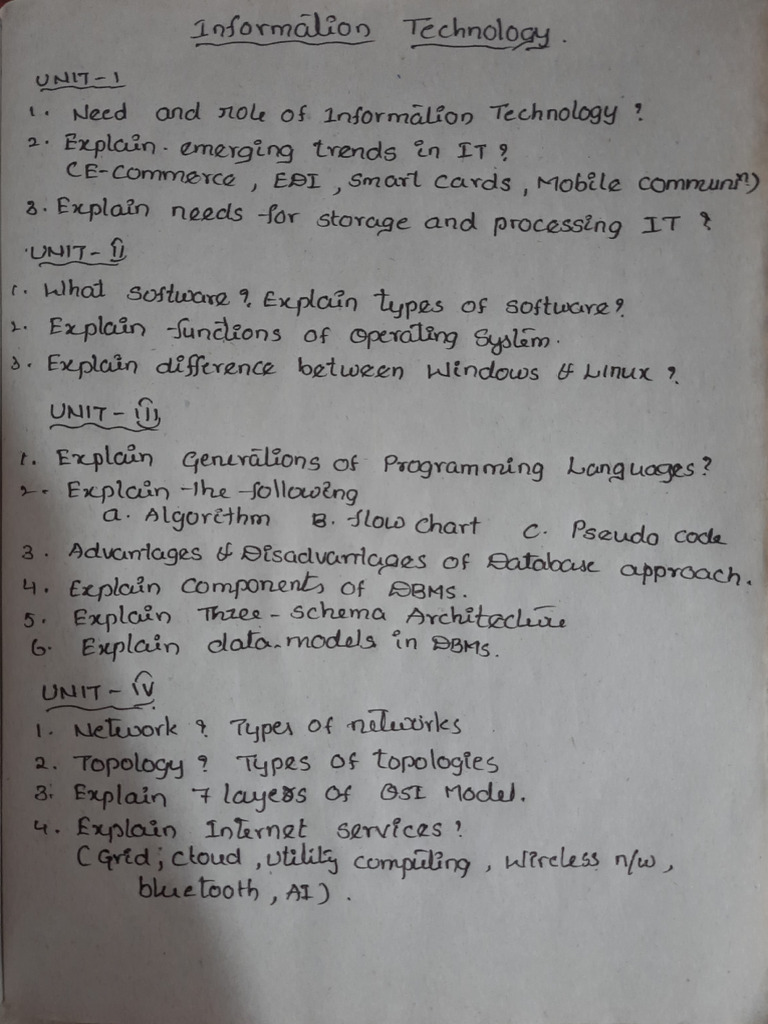 Information Technology.
UNIT-I
1. Need and role of Information Technology?
2. Explain emerging trends in IT?
(E-Commerce, EDI, Smart Cards, Mobile communin)
3. Explain needs for storage and processing IT?
UNIT-II
1. What software? Explain types of software?
2. Explain functions of Operating System.
3. Explain difference between Windows & Linux?
UNIT-III
1. Explain Generations of Programming Languages?
2. Explain the following
a. Algorithm B. flow chart C. Pseudo code
3. Advantages & Disadvantages of Database approach.
4. Explain Components of DBMS.
5. Explain Three-Schema Architecture
6. Explain data models in DBMS.
UNIT-IV
1. Network? Types of networks
2. Topology? Types of topologies
3. Explain 7 layers of OSI Model.
4. Explain Internet services?
(Grid, cloud, utility computing, wireless n/w,
bluetooth, AI).